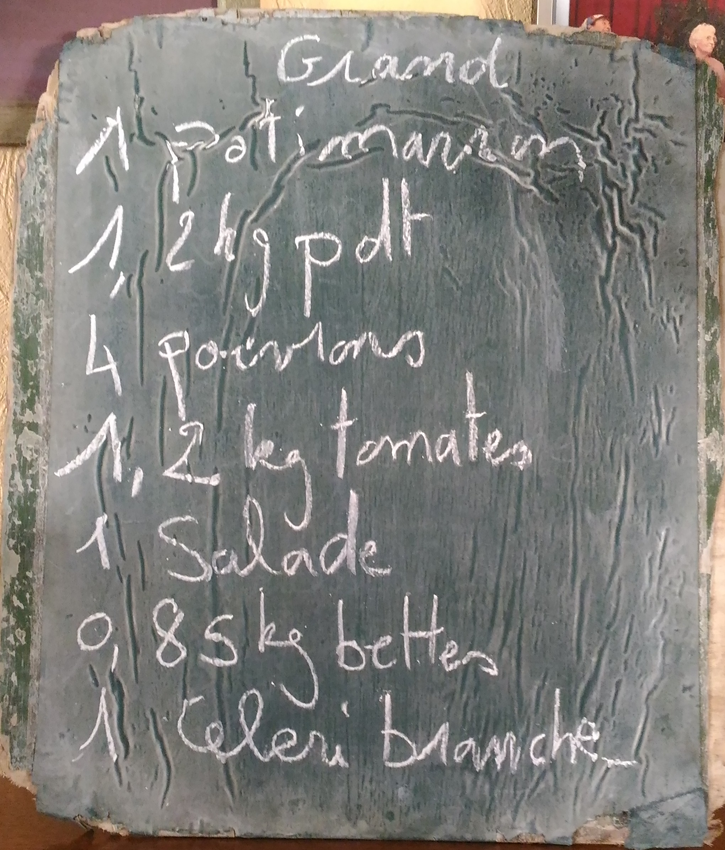 Grand
1 potimarron
1,2 kg pdt
4 poivrons
1,2 kg tomates
1 Salade
0,85 kg bettes
1 Céleri branche